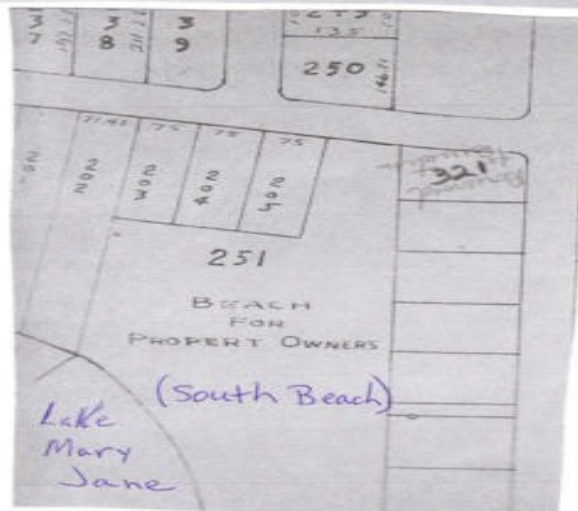 37
38
39
135
250
146.71
71.43
75
75
75
202
203
204
205
321
251
BEACH
FOR
PROPERT OWNERS
(South Beach)
Lake
Mary
Jane